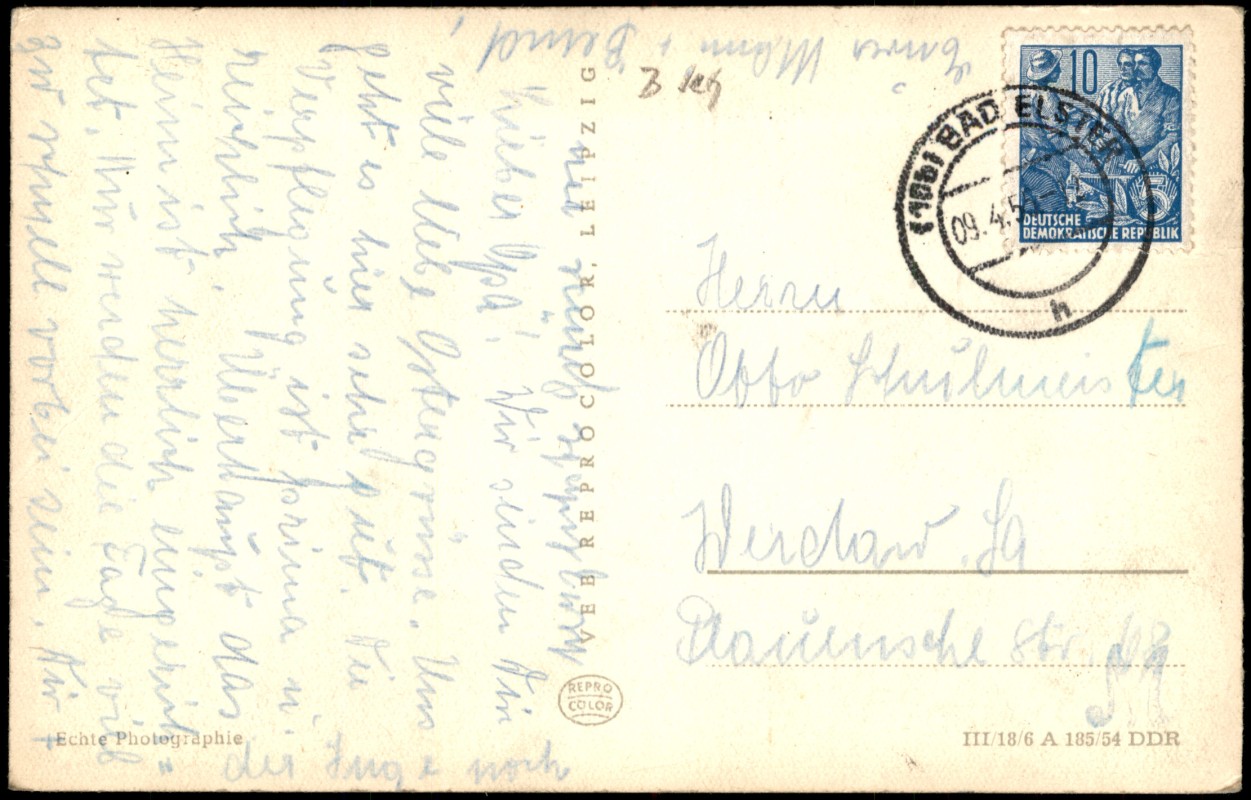 Lieber Opa! Wir senden Dir
viele liebe Ostergrüsse. Uns
geht es hier sehr gut. Die
Verpflegung ist prima u.
reichlich. Überhaupt das
Heim ist herrlich eingerich=
tet. Nur werden die Tage viel
zu schnell vorbei sein. Für
die Junge noch
Bernd,
VEB REPROCOLOR, LEIPZIG
REPRO
COLOR
Echte Photographie
10
+5
DEUTSCHE
DEMOKRATISCHE REPUBLIK
BAD ELSTER
09.4.5
h
Herrn
Otto Schulmeister
Werdau. Sa
Plauensche Str.
III/18/6 A 185/54 DDR